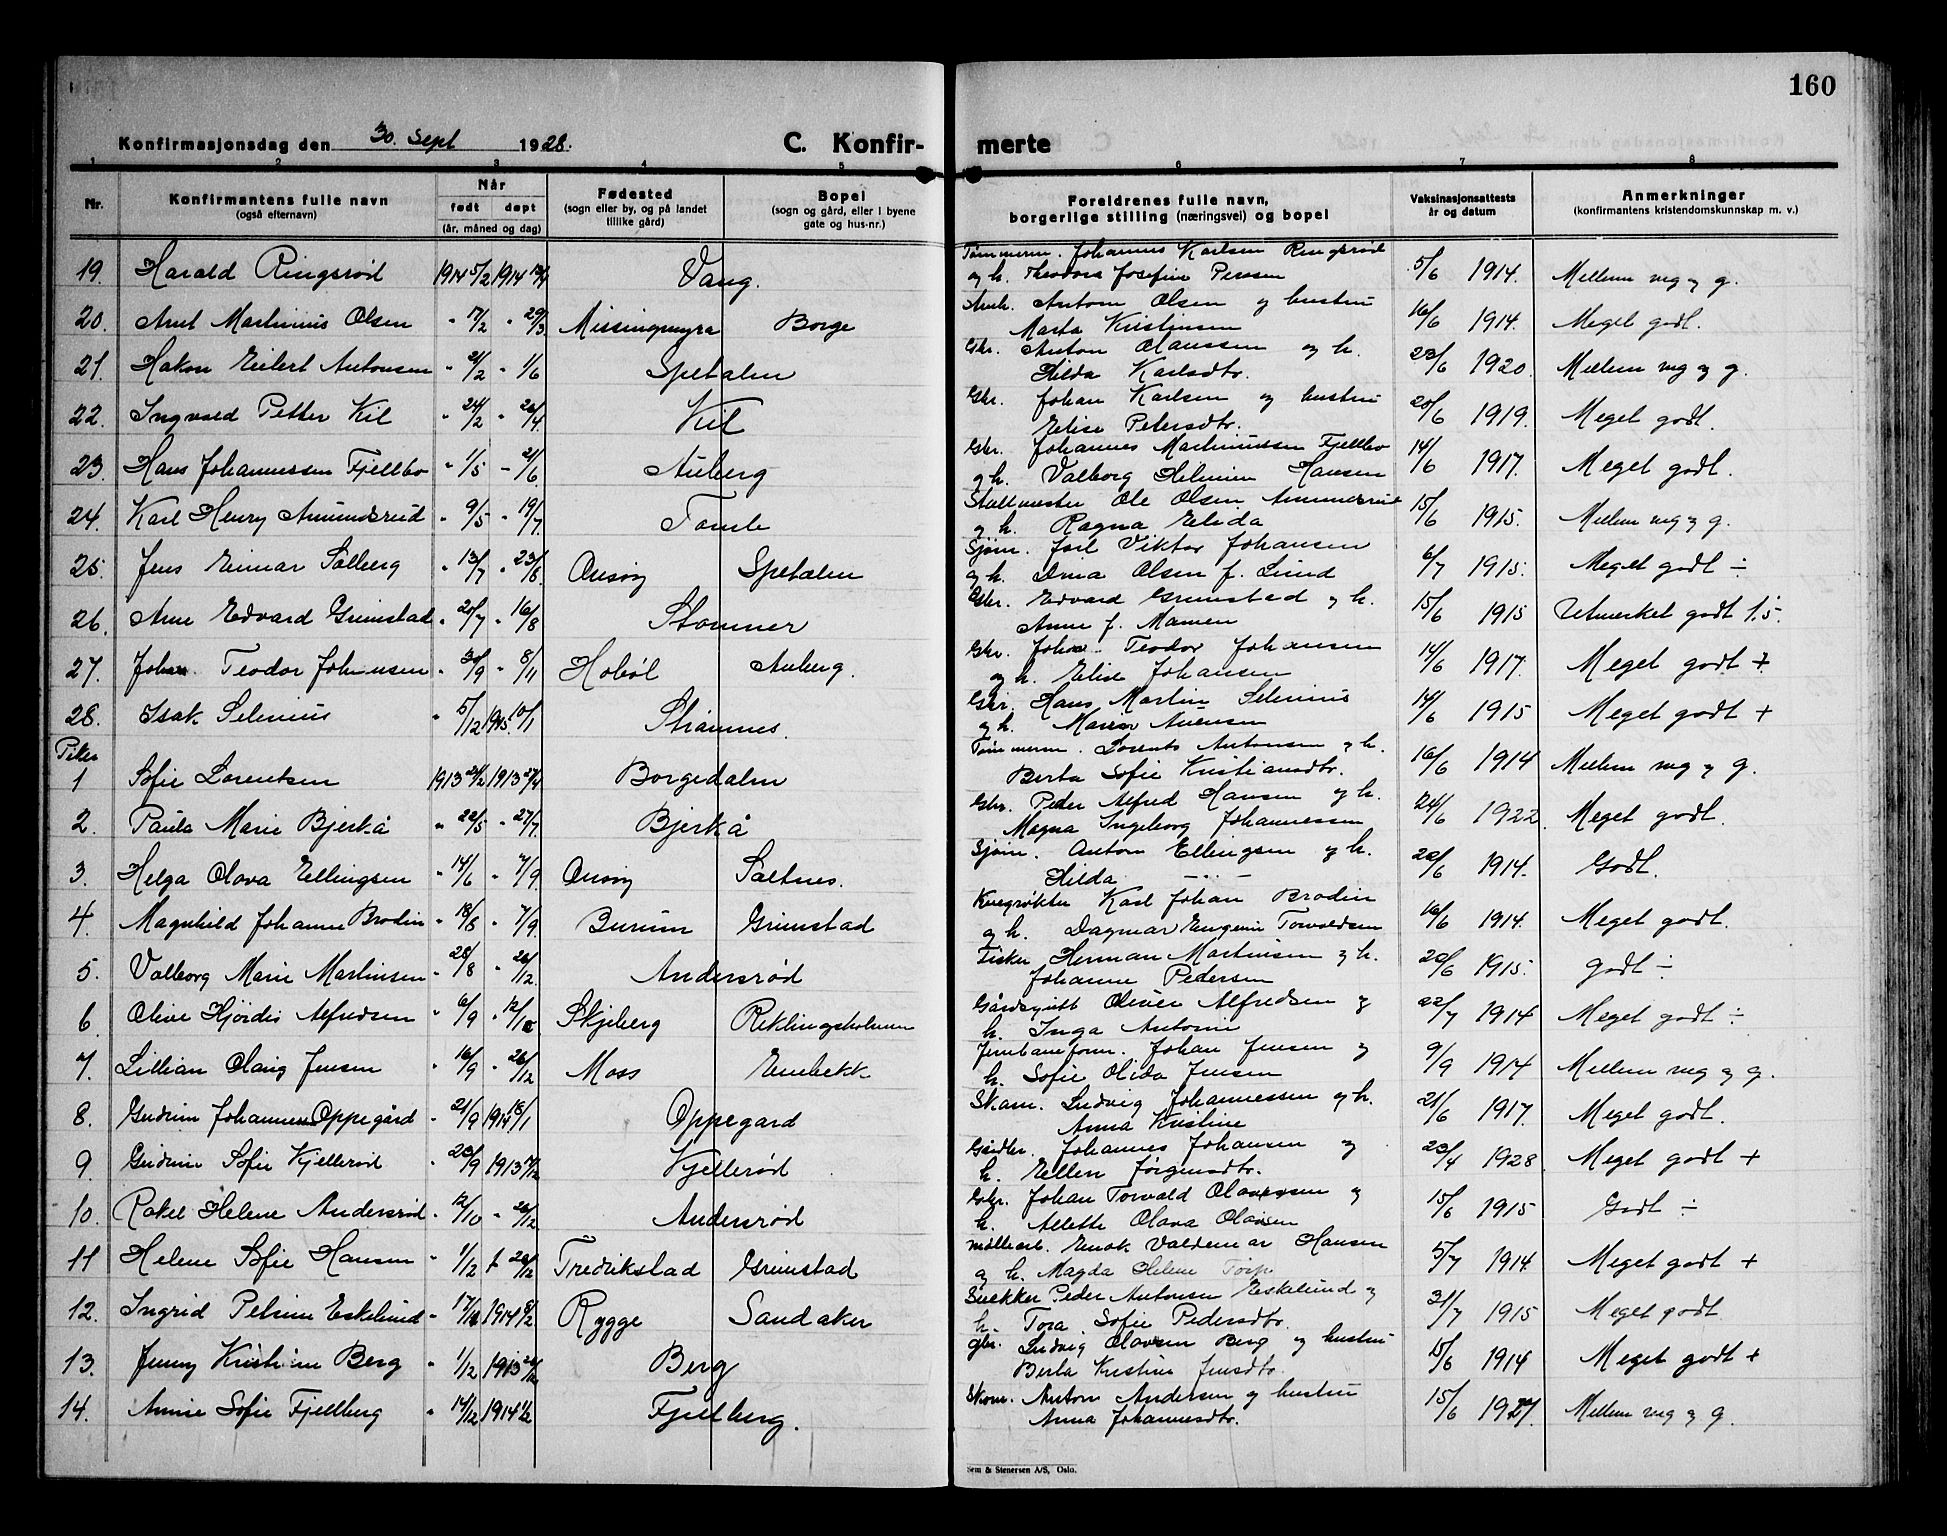 160
Konfirmasjonsdag den 30. Sept 1928.
C. Konfir- merte
1 2 3 4 5 6 7 8
Nr.
Konfirmantens fulle navn
(også efternavn)
Når
født døpt
(år, måned og dag)
Fødested
(sogn eller by, og på landet
tillike gård)
Bopel
(sogn og gård, eller i byene
gate og hus-nr.)
Foreldrenes fulle navn,
borgerlige stilling (næringsvei) og bopel
Vaksinasjonsattests
år og datum
Anmerkninger
(konfirmantens kristendomskunnskap m. v.)
19. Harald Ringsrød 1914 5/2 1914 Vang. Tømmerm. Johannes Karlsen Ringsrød 5/6 1914. Mellem mg og g.
og h. Theodora Josefine Persen
20. Martinius Olsen - 17/2 - 29/3 Missingmyra Borge Arb. Anton Olsen og hustru 16/6 1914. Meget godt.
Marta Kristinsen
21. Hakon Eilert Antonsen - 21/2 - 1/6 Spetalen Gbr. Anton Olaussen og h. 23/6 1920. Mellem mg og g.
Hilda Karlsdtr.
22. Ingvald Petter Kil - 24/2 - 26/4 Kil Gbr. Johan Karlsen og hustru 20/6 1919. Meget godt.
Elise Petersdtr.
23. Hans Johannessen Fjellbo - 1/5 - 21/6 Auberg Gbr. Johannes Martinussen Fjellbo 14/6 1917. Meget godt.
og h. Valborg Helmine Hansen
24. Karl Henry Amundsrud - 9/5 - 19/7 Tomb Stallmester Ole Olsen 15/6 1915. Mellem mg og g.
og h. Ragna Elida
25. Jens Einar Solberg - 13/7 - 23/8 Onsøy Spetalen Sjøm. Joel Viktor Johansen 6/7 1915. Meget godt ÷
og h. Olsen f. Lund
26. Arne Edvard Grimstad - 20/7 - 16/8 Stomner Gbr. Edvard Grimstad og h. 15/6 1915 Utmerket godt 1.5.
Anne f. Mamen
27. Johan Teodor Johansen - 30/9 - 8/11 Hobøl Auberg. Gbr. Johan Teodor Johansen 14/6 1917. Meget godt +
og h. Elise Johansen
28. Isak Selenius - 5/12 1915. 10/1 Strømnes. Gbr. Hans Martin Selenius 14/6 1915 Meget godt +
og h.
Piker
1 Sofie Lorentsen 1913 1913 Borgedalen Tømmerm. Lorents Antonsen og h. 16/6 1914 Mellem mg og g.
Berta Sofie Kristiansdtr.
2. Paula Marie Bjerkå - 22/5 - 27/7 Bjerkå Gbr. Peder Alfred Hansen og h. 24/6 1922. Meget godt.
Magna Ingeborg Johannessen
3. Helga Olava Ellingsen - 14/6 - 7/9 Onsøy Saltnes. Sjøm. Anton Ellingsen og h. 22/6 1914. Godt.
Hilda — " —
4. Magnhild Johanne Brodin - 18/8 - 7/9. Burum Grimstad Kuegrøkter Karl Johan Brodin 16/6 1914. Meget godt.
og h. Dagmar Eugenie Torvaldsen
5. Valborg Marie Martinsen - 28/8 - 26/12. Andersrød Fisker Herman Martinsen og h. 20/6 1915. Godt ÷
Johanne Pedersen
6. Olive Hjørdis Alfredsen - 6/9 - 12/10 Skjeberg Riklingsholmen Gårdsgutt Oliver Alfredsen og 22/7 1914 Meget godt ÷
h. Inga Antonie
7. Lillian Olaug Jensen - 16/9 - 26/12 Moss Enebekk Jernbaneform. Johan Jensen og 9/9 1914 Mellem mg og g.
h. Sofie Olida Jensen
8. Gudrun Johannessen Oppegård - 21/9 1914 18/1 Oppegård Skom. Ludvig Johannessen og h. 21/6 1917. Meget godt.
Anna Kristine
9. Gudrun Sofie Kjellerød - 23/9 1913 Kjellerød Johannes Johansen og 23/4 1928. Meget godt +
h. Ellen Jørgensdtr.
10. Rakel Helene Andersrød - 12/10 - 26/12 Andersrød Gbr. Johan Torvald Olavesen og 15/6 1915 Godt ÷
h. Alette Olava Olavsen
11 Helene Sofie Hansen - 1/12 Fredrikstad Grimstad Møllearb. Enok Valdemar Hansen 5/7 1914 Meget godt +
og h. Magda Helene Torp
12. Ingrid Petrine Eskelund - 1914 Rygge Sandaker Snekker Peder Antonsen Eskelund og 31/7 1915 Meget godt
h. Tora Sofie Pedersdtr.
13. Jenny Kristine Berg - 1/12 1913 Berg gbr. Ludvig Olavsen Berg og hustru 15/6 1914 Meget godt +
Berta Kristine Jensdtr.
14. Annie Sofie Fjellberg - 14/12 1914 1/2 Fjellberg. Skom. Anton Andersen og hustru 15/6 1927. Mellem mg og g.
Anna Johannesdtr.
Sem & Stenersen A/S, Oslo.